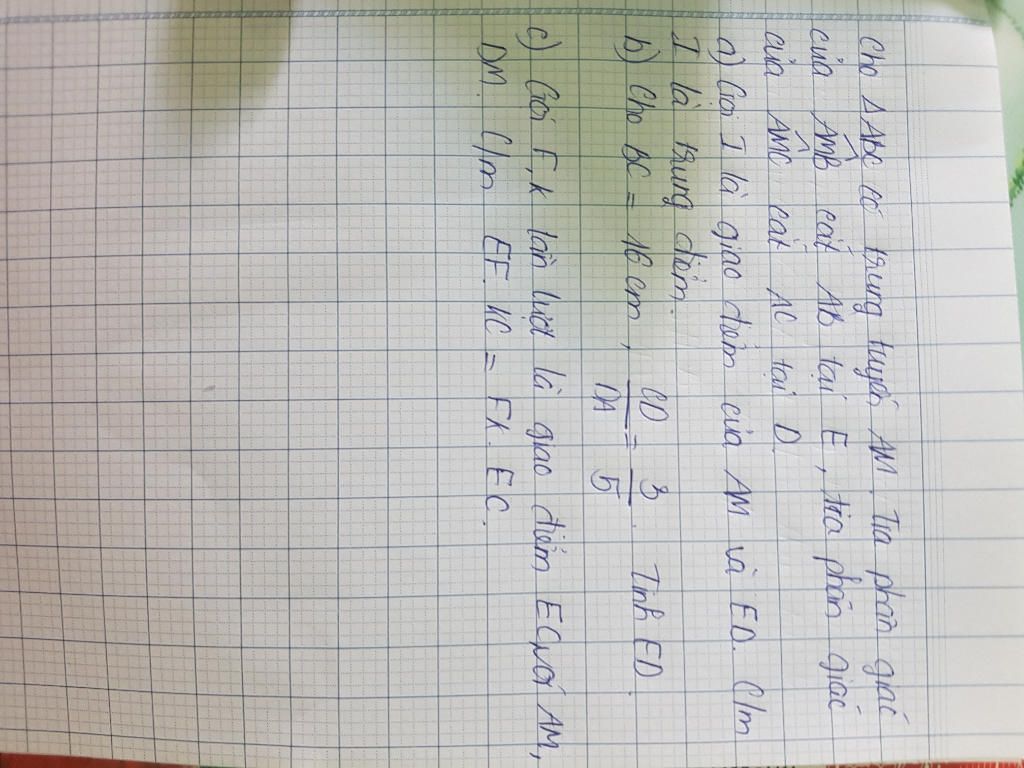 Cho ΔABC có trung tuyến AM. Tia phân giác
của AM̂B cắt AB tại E, tia phân giác
của AM̂C cắt AC tại D
a) Gọi I là giao điểm của AM và ED. C/m
I là trung điểm.
b) Cho BC = 16 cm, CD/DA = 3/5. Tính ED.
c) Gọi F, K lần lượt là giao điểm EC với AM,
DM. C/m EF. KC = FK. EC.